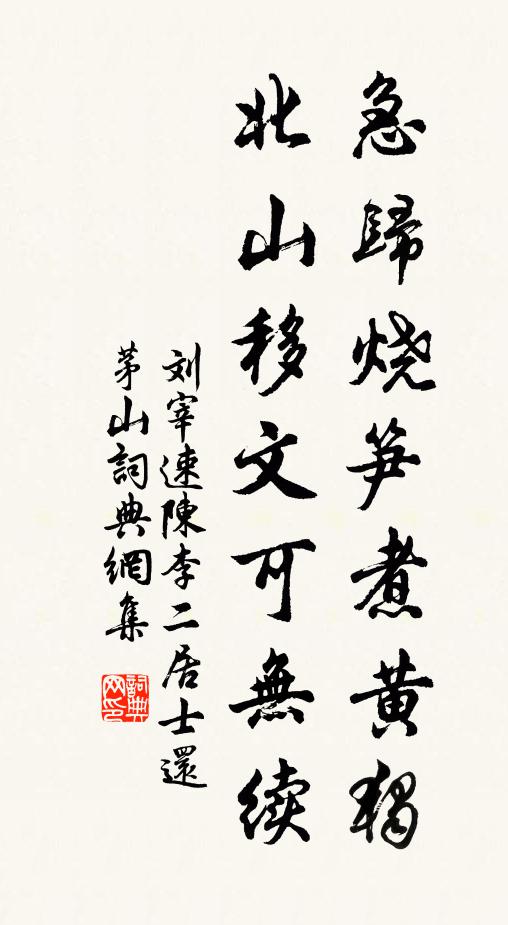 急歸烧笋煮黄獨
北山移文可無续
刘宰速陳李二居士還
茅山詞典網集
詞典网印